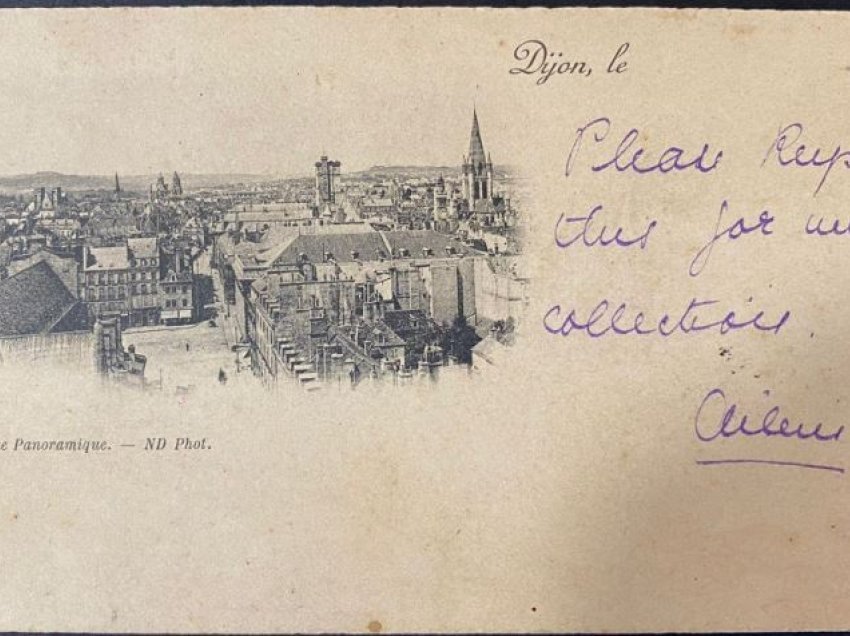 Dijon, le
Please Keep
this for my
collection.
Aileen
e Panoramique. — ND Phot.